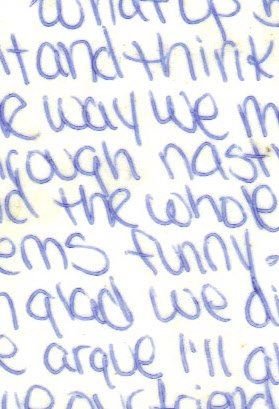 what up
it and think
e way we m
rough nast
d the whole
ems funny.
n glad we di
e argue I'll a
our friend